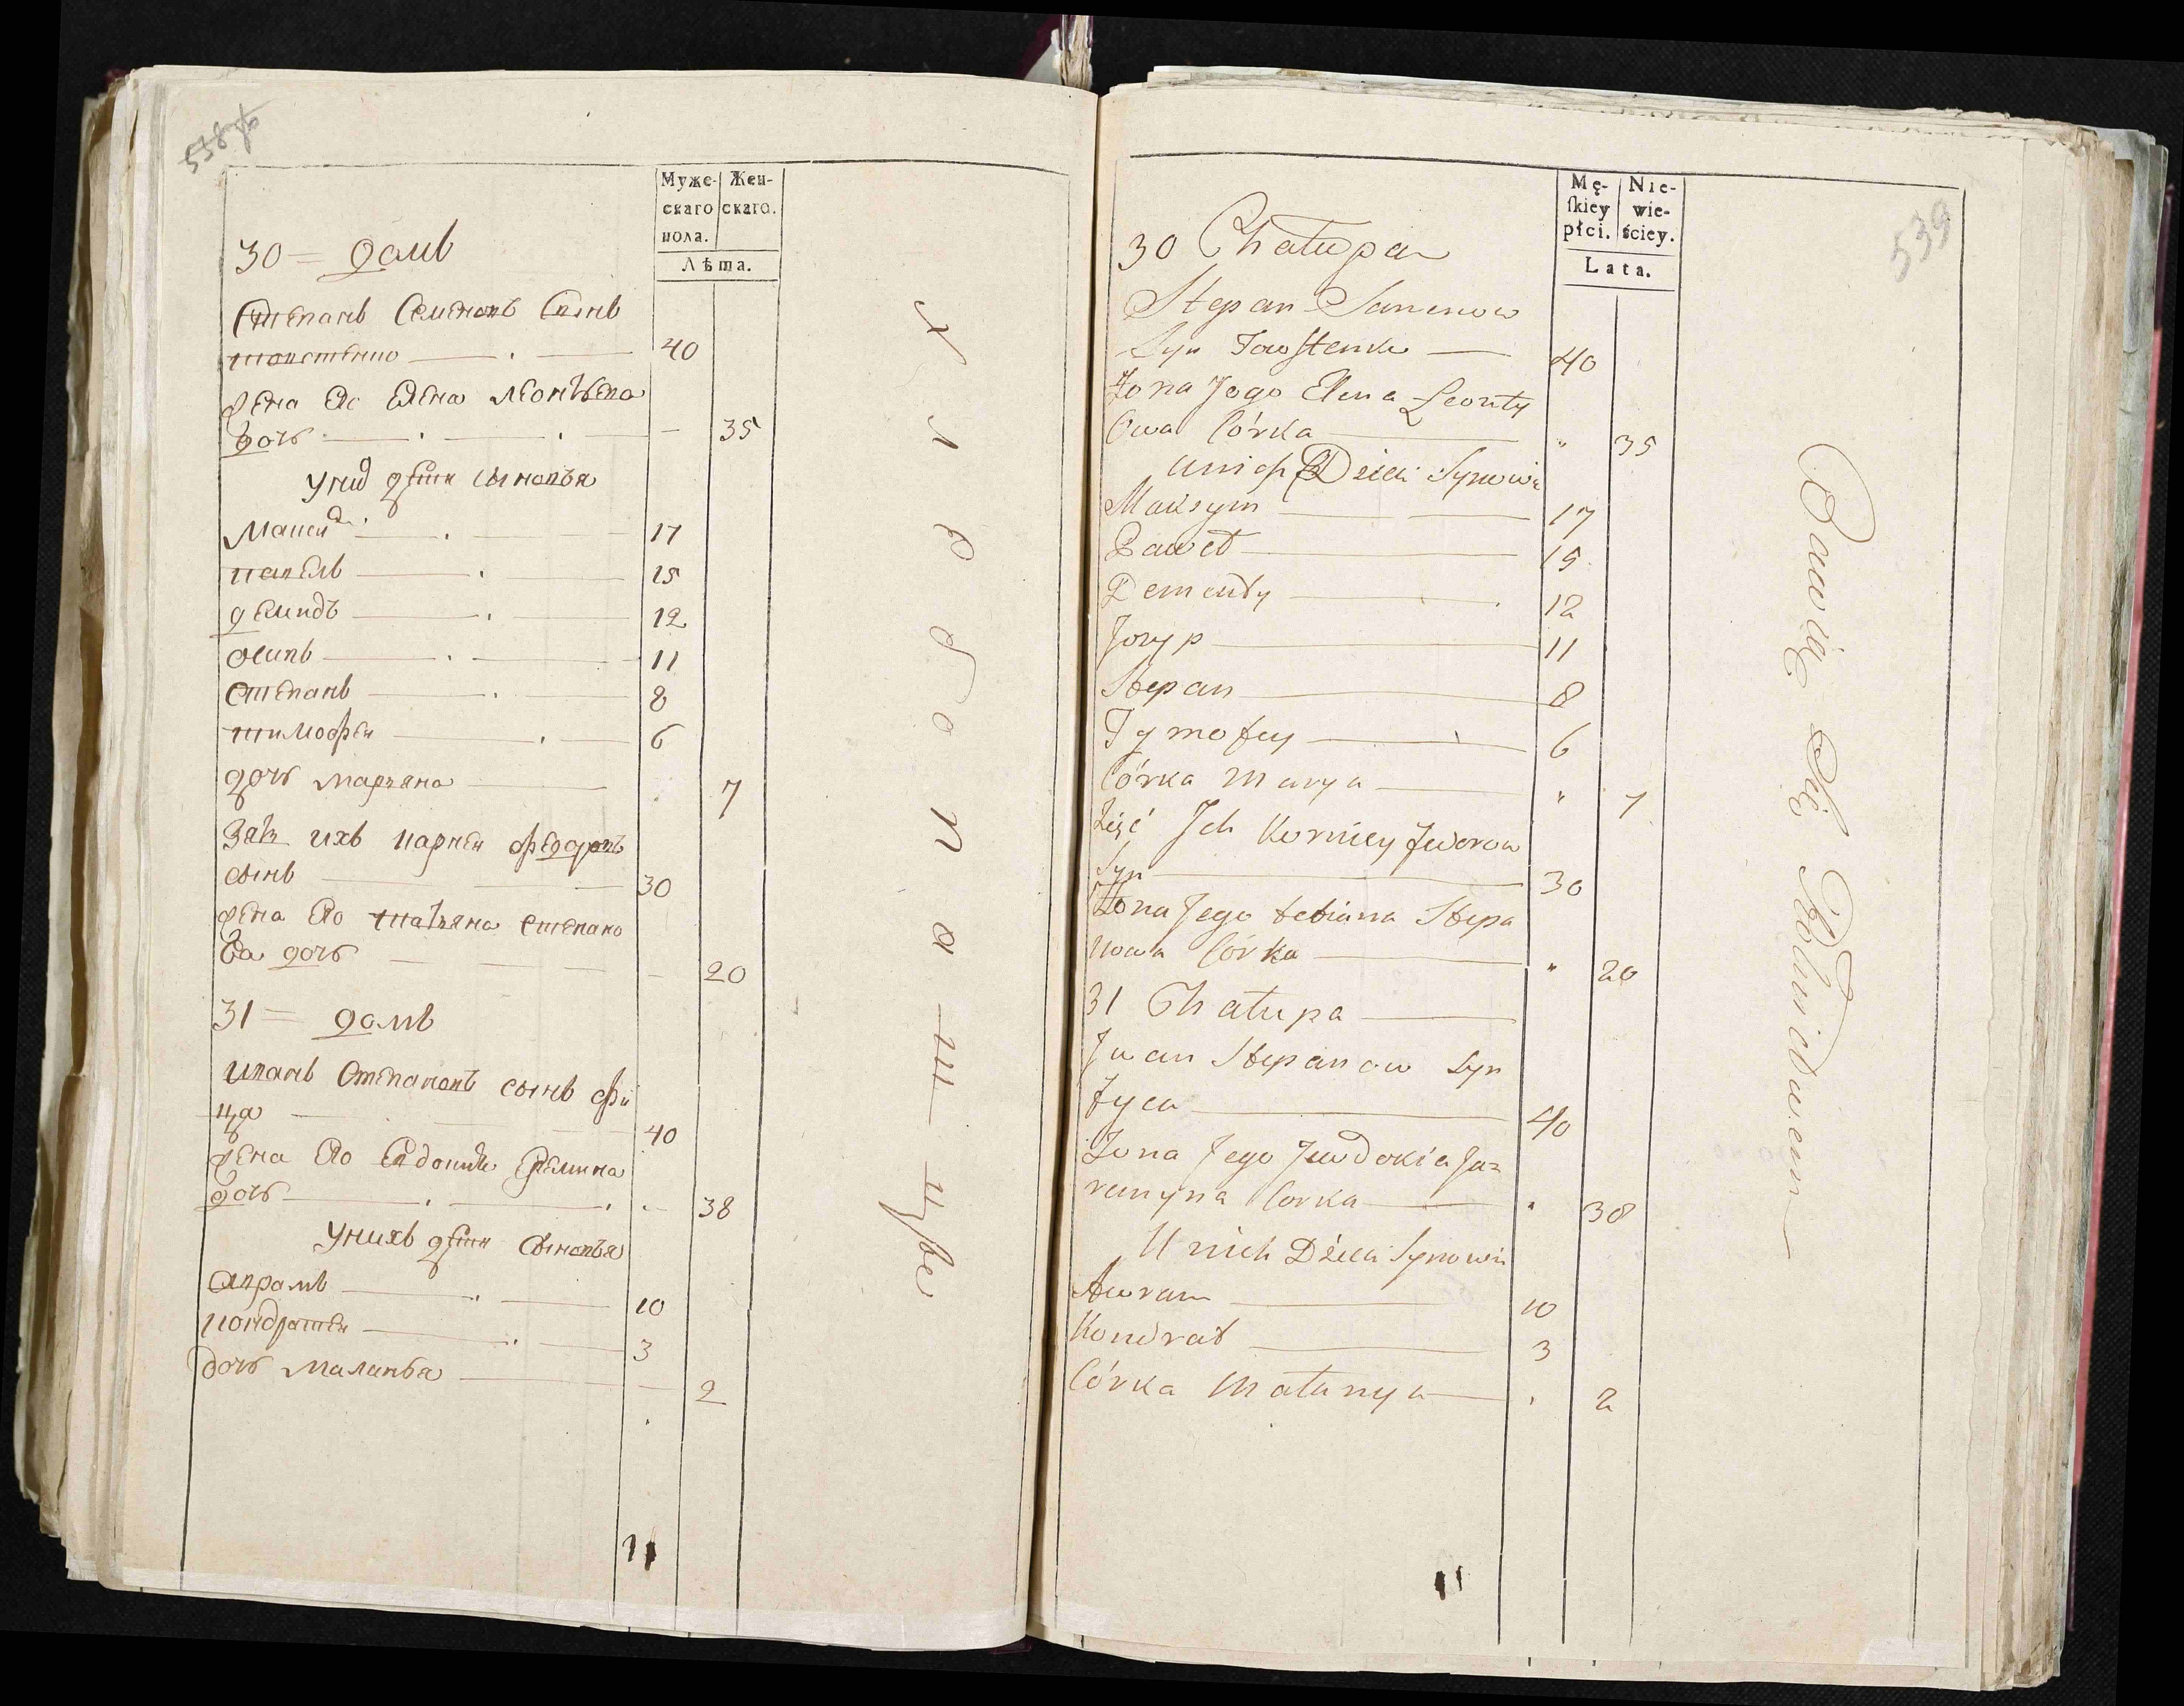 538об
Муже- Жен-
скаго скаго.
пола.
Лѣта.
30 = домъ
Степанъ Семеновъ Сынъ
товстенко 40
жена Его Елена Леонтьева
дочь 35
у них дети сыновья
Максим 17
павелъ 15
демидъ 12
осипъ 11
степанъ 8
тимофеи 6
дочь марьяна 7
зять ихъ карнеи федоровъ
сынъ 30
жена Его татьяна степано
ва дочь 20
31 = домъ
иванъ Степановъ сынъ фи
ца 40
жена Его Евдокия Еремина
дочь 38
у нихъ дети Сыновья
аврамъ 10
кондратеи 3
дочь маланья 2
11
хлебопашцы
Mę- Nie-
ſkiey wie-
płci. ściey.
Lata.
539
30 Chałupa
Stepan Samenow
Syn Towstenko 40
Żona Jego Elena Leonty
Owa Córka " 35
U nich Dzieci Synowie
Maksym 17
Paweł 15
Dementy 12
Jozyp 11
Stepan 8
Tymofey 6
Córka Marya " 7
Zięć Ich Korniey Fedorow
Syn 30
Żona Jego tetiana Stepa
nowa Córka " 20
31 Chałupa
Iwan Stepanow Syn
fyca 40
Żona Jego Jewdokia Ja=
remyna Corka 38
U nich Dzieci Synowie
Awram 10
Kondrat 3
Córka Małanya 2
11
Bawią Się Rolnictwem